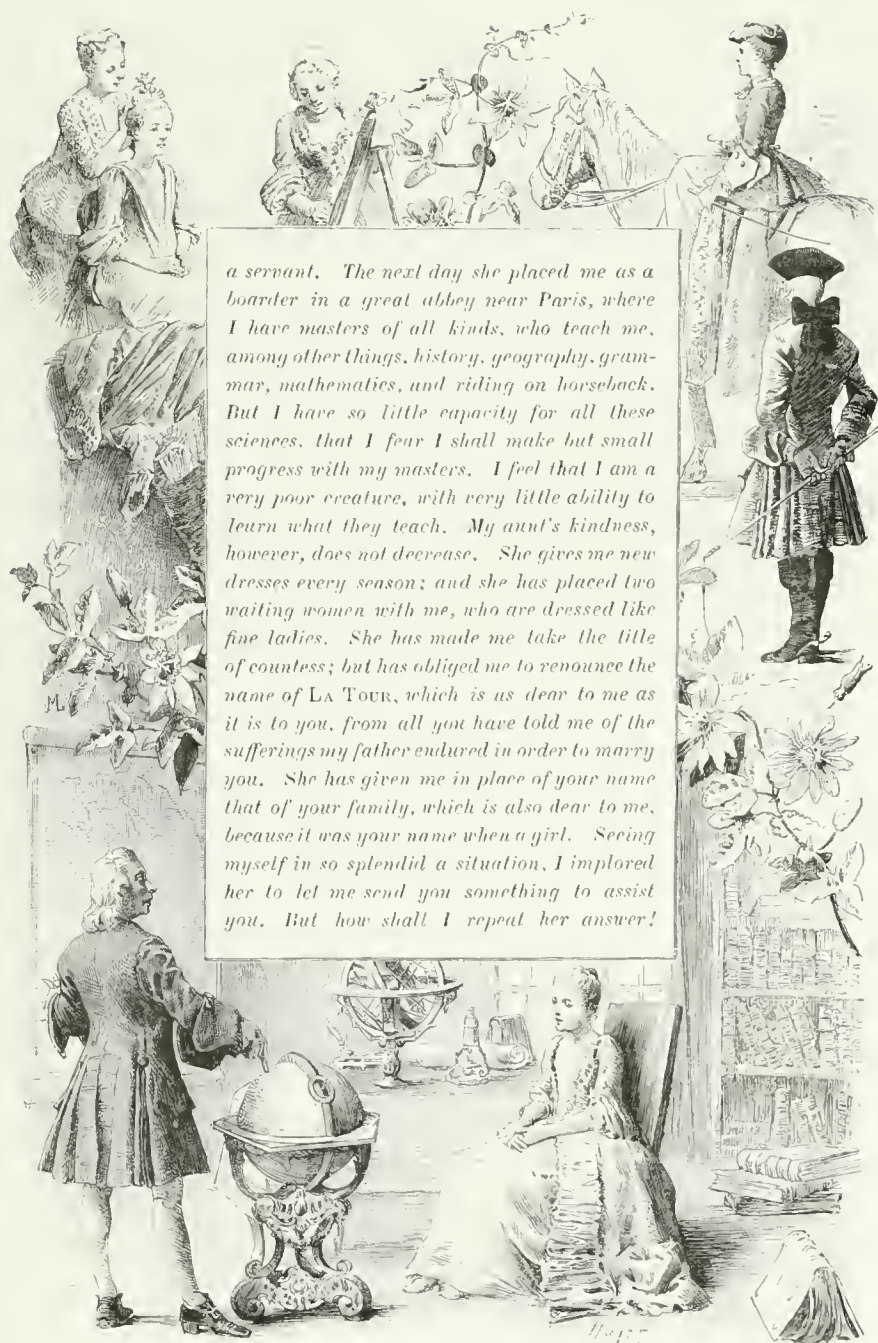 a servant. The next day she placed me as a
boarder in a great abbey near Paris, where
I have masters of all kinds, who teach me,
among other things, history, geography, gram-
mar, mathematics, and riding on horseback.
But I have so little capacity for all these
sciences, that I fear I shall make but small
progress with my masters. I feel that I am a
very poor creature, with very little ability to
learn what they teach. My aunt's kindness,
however, does not decrease. She gives me new
dresses every season; and she has placed two
waiting women with me, who are dressed like
fine ladies. She has made me take the title
of countess; but has obliged me to renounce the
name of LA TOUR, which is as dear to me as
it is to you, from all you have told me of the
sufferings my father endured in order to marry
you. She has given me in place of your name
that of your family, which is also dear to me,
because it was your name when a girl. Seeing
myself in so splendid a situation, I implored
her to let me send you something to assist
you. But how shall I repeat her answer!
ML